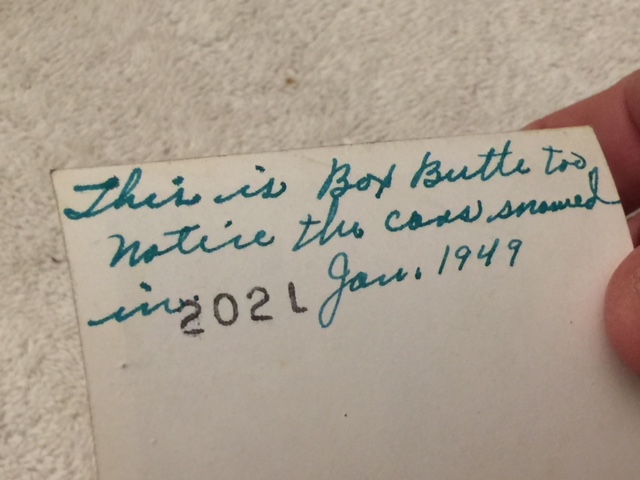 This is Box Butte too,
Notice the cars snowed
in. 2021 Jan. 1949